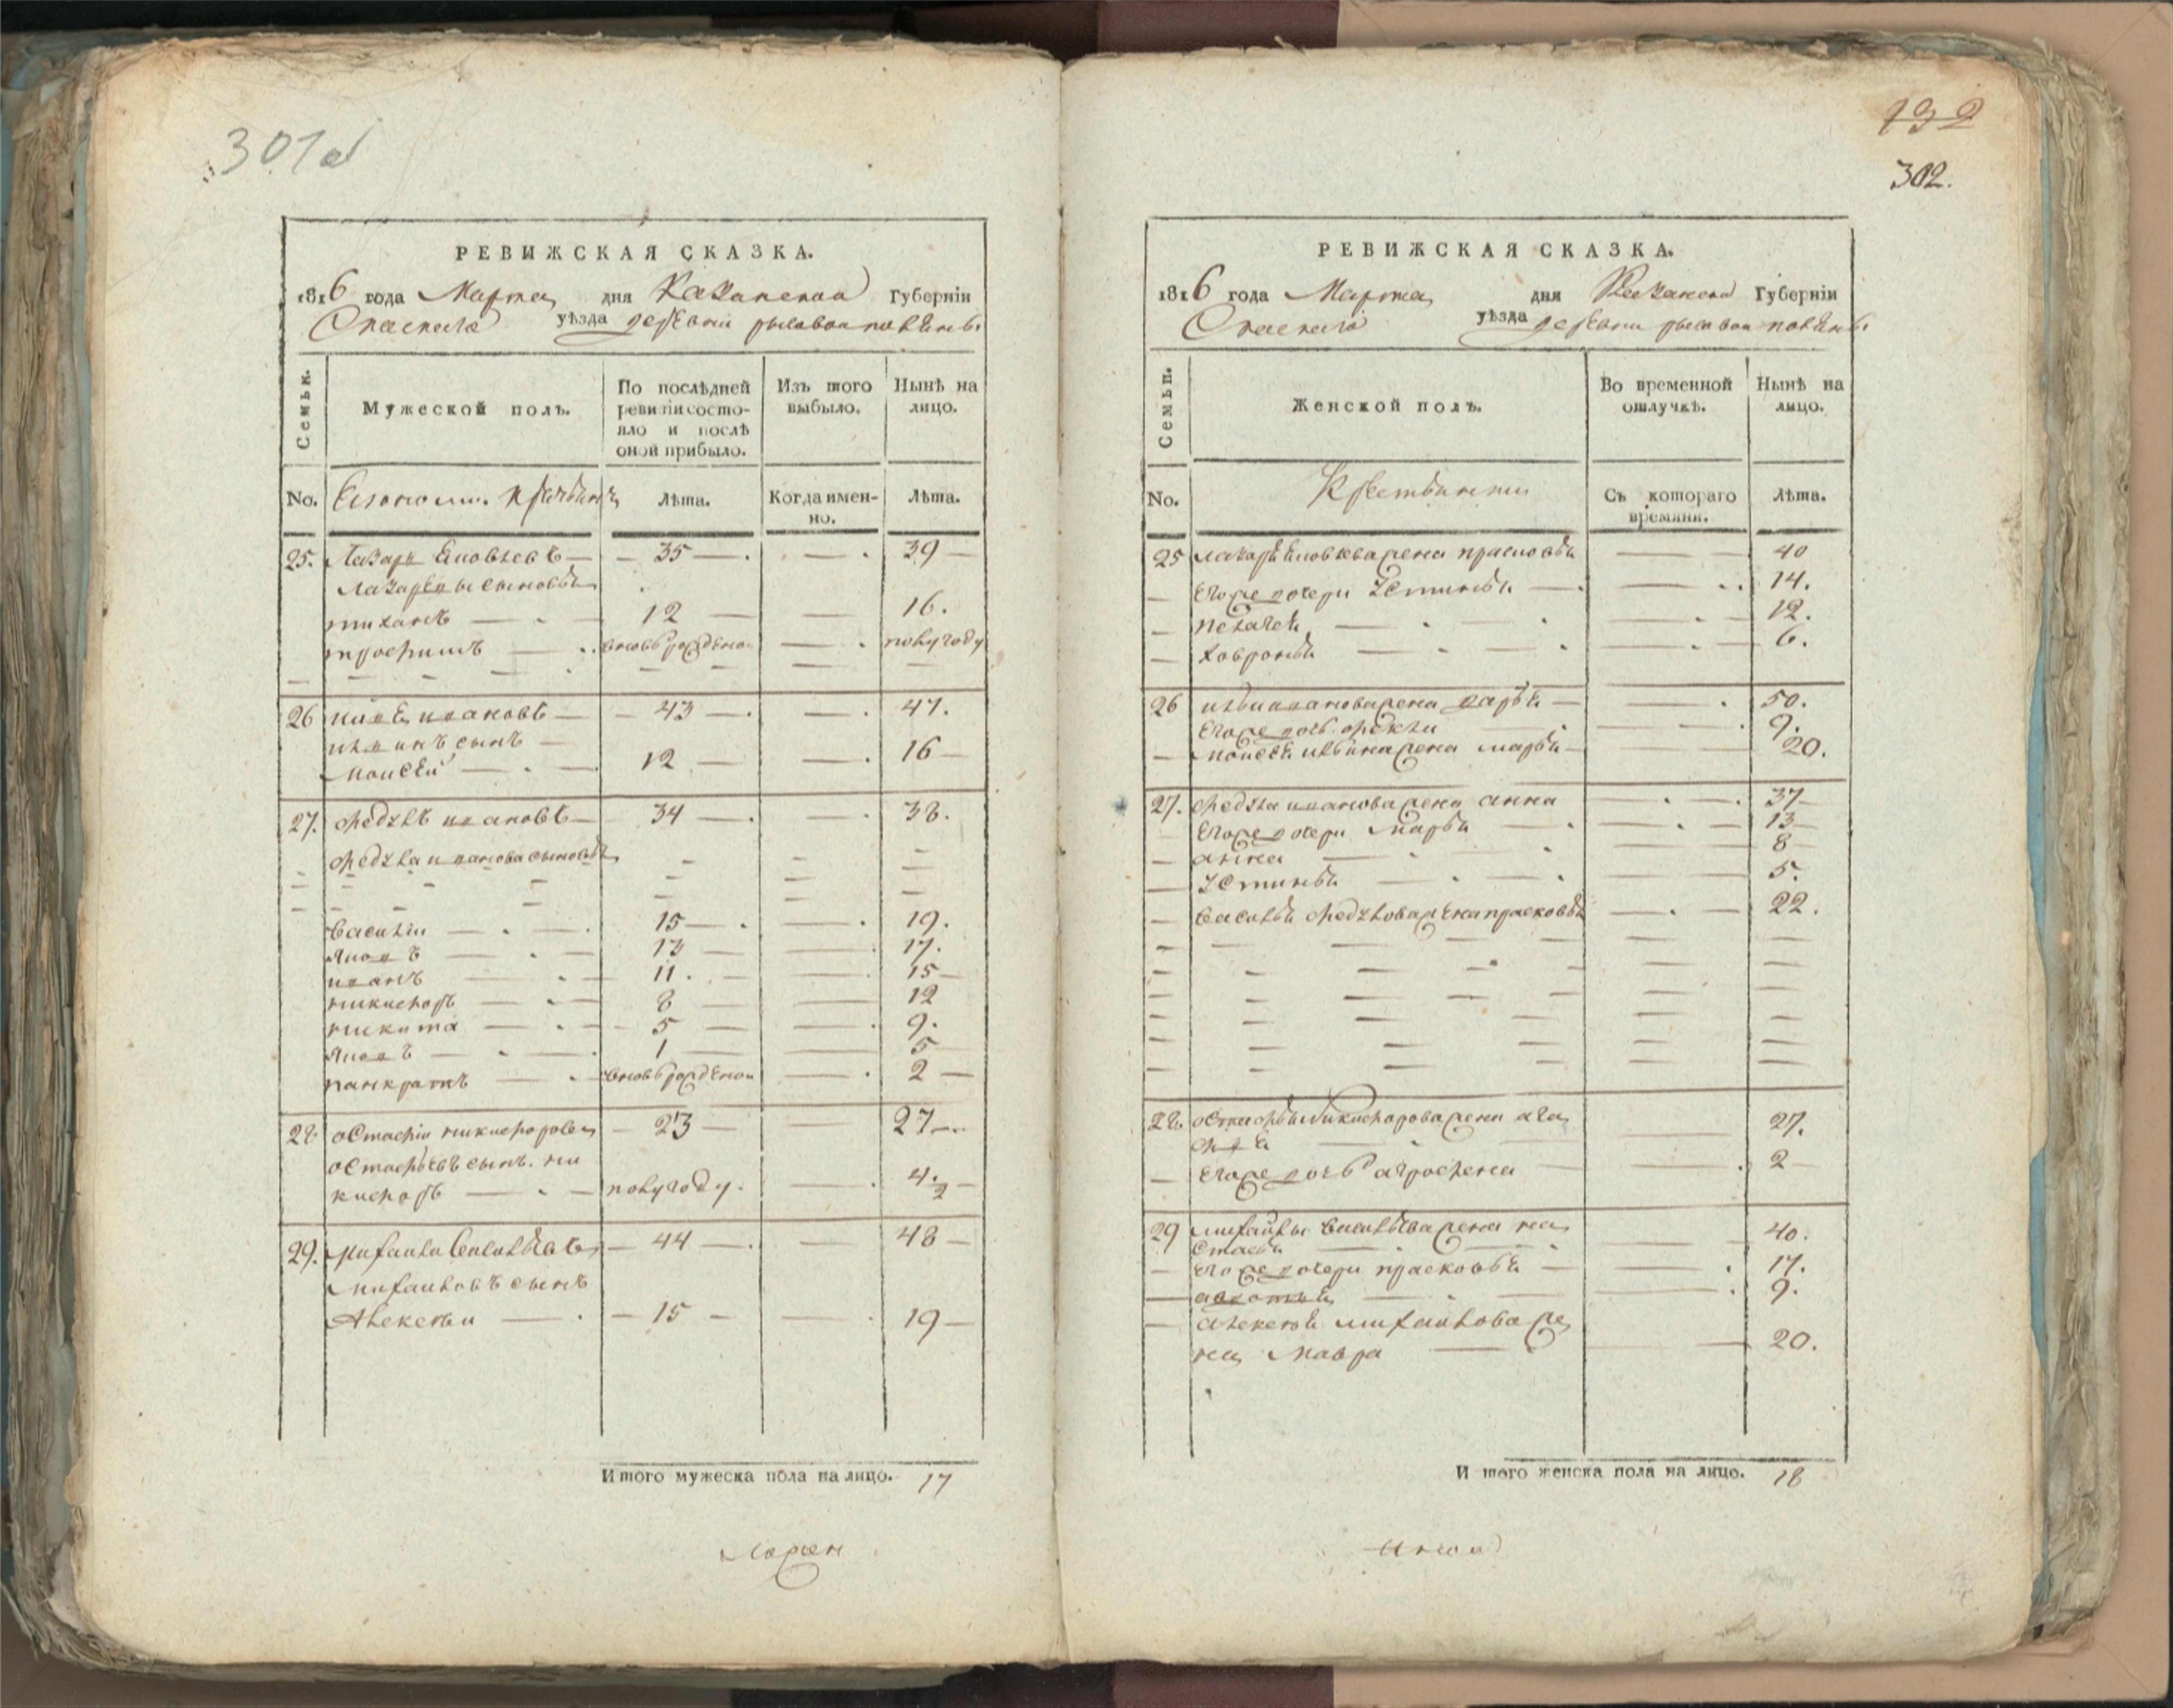 301а
РЕВИЖСКАЯ СКАЗКА.
1816 года Марта дня Казанской Губерніи
Спаскаго уѣзда деревни
Семьи.
Мужеской полъ.
По послѣдней ревизіи состояло и послѣ оной прибыло.
Изъ того выбыло.
Нынѣ на лицо.
No.
Лѣта.
Когда именно.
Лѣта.
25. Лазарь Яковлевъ — 35 — — 39
Лазаревы сыновья
тиханъ — 12 — — 16.
трофимъ — вновь рожденъ — полугоду
26 ивановъ — 43 — — 47.
сынъ
Моисей — 12 — — 16
27. Федулъ ивановъ — 34 — — 38.
Федула иванова сыновья
Василіи — 15 — — 19.
Яковъ — 13 — — 17.
иванъ — 11. — — 15
никифоръ — 8 — — 12
никита — 5 — — 9.
Яковъ — 1 — — 5
панкратъ — вновь рожденои — 2
28 остафіи никифоровъ — 23 — — 27
остафьевъ сынъ. ни
кифоръ — полугоду. — 4. 2
29. михаила Васильевъ — 44 — — 48
михаиловъ сынъ
Алексеи — 15 — — 19
Итого мужеска пола на лицо. 17
132
302.
РЕВИЖСКАЯ СКАЗКА.
1816 года Марта дня Казанской Губерніи
Спаскаго уѣзда деревни
Семьи.
Женской полъ.
Во временной отлучкѣ.
Нынѣ на лицо.
No.
Крестьянки
Съ котораго времяни.
Лѣта.
25 лазаря Яковлева жена прасковья — 40
Егоже дочери Устинья — 14.
пелагея — 12.
ховронья — 6.
26 иванова жена дарья — 50.
Егоже дочь фекла — 9.
моисея жена марья — 20.
27. Федула иванова жена анна — 37
Егоже дочери марья — 13
анна — 8
Устинья — 5.
Василья Федулова жена прасковья — 22.
28. остафья Никифорова жена ага
фья — 27.
Егоже дочь агрофена — 2
29 михаилы Васильева жена на
стасья — 40.
Егоже дочери прасковья — 17.
авдотья — 9.
алексея михаилова же
на мавра — 20.
Итого женска пола на лицо. 18